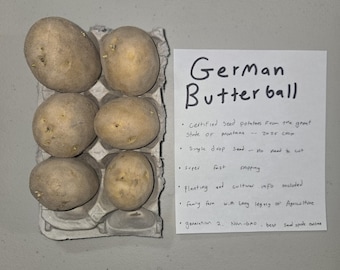 German
Butterball
• Certified Seed potatoes from the great
state of montana — 2020 crop
• Single drop Seed — No need to cut
• Fast shipping
• Planting and cultural info included
• family farm with long legacy of Agriculture
• generation 2, Non-GMO, best seed